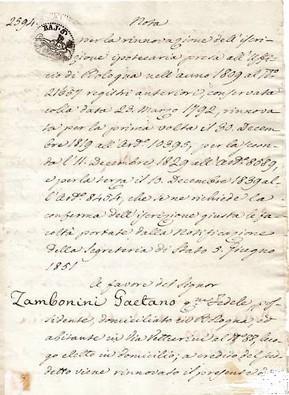 2594.
BAJ. 5
Nota
per la rinnovazione dell'iscri=
zione ipotecaria presa all'Uffi=
cio di Bologna nell'anno 1809 al N°
21657 registri anteriori, conservata
colla data 23. Marzo 1792, rinnova
ta per la prima volta il 30. Decem=
bre 1819 all'Ard° 10395, per la secon
da l'11. Decembre 1829 all'Ard° 8089,
e per la terza il 10. Decembre 1839 al
l'Ard° 8454, che se ne richiede la
conferma dell'iscrizione giusta le fa
coltà portate dalla Notificazione
della Segreteria di Stato 5. Giugno
1851
A favore del Signor
Zambonini Gaetano q.m Fedele, pos=
sidente, domiciliato in Bologna, ed
abitante in Via al N° 57 luo=
go eletto in domicilio; a credito del sud
detto viene rinnovato il presente